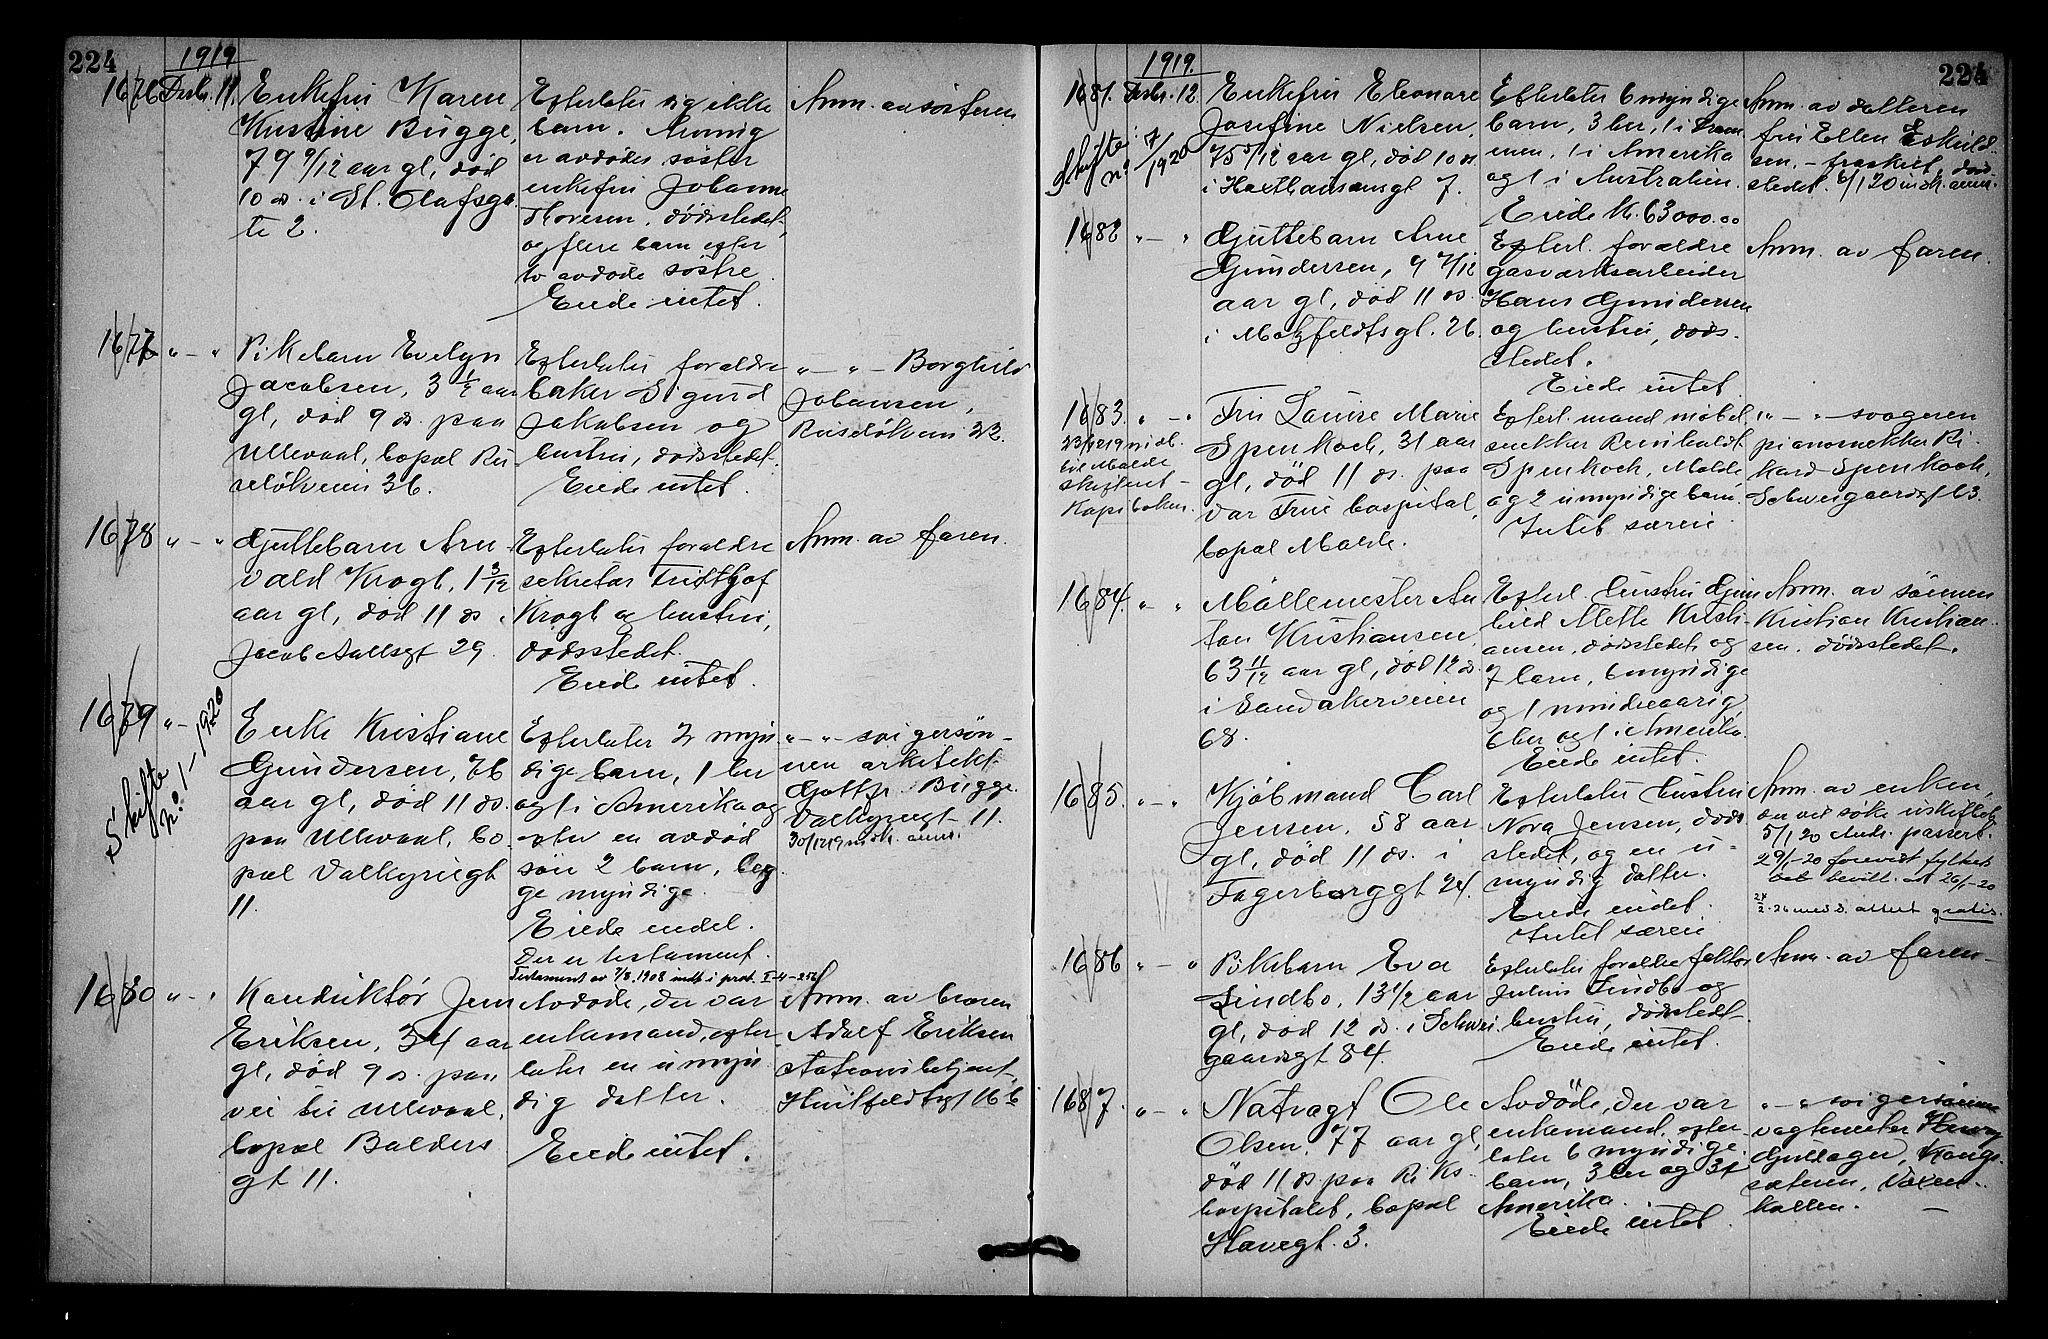 224
1919
1676 Desbr. 11.
Enkefru Karen
Kristine Bugge,
79 9/12 aar gl, död
10 ds. i St. Olafsga
te 2.
Efterlater sig ikke
barn. Arving
er avdödes söster
enkefru Johanne
Thoresen, dödsstedet,
og flere barn efter
to avdöde söstre.
Eiede intet.
Anm. av søsteren
1677 " — "
Pikebarn Evelyn
Jacobsen, 3 1/2 aar
gl, död 9 ds. paa
Ullevaal, bopæl Ru
seløkveien 36.
Efterlater forældre
baker Sigurd
Jakobsen og
hustru, dødsstedet.
Eiede intet.
" — " — Borghild
Johansen,
Ruseløkveien 32.
1678 " — "
Guttebarn Arn
vald Krogh, 1 3/12
aar gl, död 11 ds. i
Jacob Aallsgt 29.
Efterlater forældre
sekretær Fridthjof
Krogh og hustru,
dødsstedet.
Eiede intet.
Anm. av faren.
1679 " —
Skifte
No 1 — 1920
Enke Kristiane
Gundersen, 76
aar gl, död 11 ds.
paa Ullevaal, bo
pæl Valkyriegt
11.
Efterlater 2 myn
dige barn, 1 her
og 1 i Amerika og
efter en avdöd
sön 2 barn, beg
ge myndige.
Eiede endel.
Der er testament.
Testament av 7/8.1908 indt. i prot. I-4-256
" — " svigersön
nen arkitekt
Gotfr. Bugge
Valkyriegt 11.
30/12 19 insk. anm.
1680 " — "
Konduktör Jens
Eriksen, 34 aar
gl, död 9 ds. paa
vei til Ullevaal,
bopæl Balders
gt 11.
Avdøde, der var
enkemand, efter
later en umyn
dig datter.
Eiede intet.
Anm. av broren
Adolf Eriksen
stationsbetjent,
Huitfeldtsgt 16 b
224
1919.
1681. Desbr. 12.
Skifte
no 7/1920
Enkefru Eleonore
Josefine Nielsen,
75 5/12 aar gl, død 10 ds
i Haxthausensgt 7.
Efterlater 6 myndige
barn, 3 her, 1 i Dram
men, 1 i Amerika
og 1 i Australien.
Eiede kr. 63000.00
Anm. av datteren
fru Ellen Eskild
sen, — fraskilt, död
stedet. 6/1 20 insk. anm.
1682 " — "
Guttebarn Arne
Gundersen, 9 7/12
aar gl, död 11 ds.
i Motzfeldtsgt. 26.
Efterl. forældre
gasverksarbeider
Hans Gundersen
og hustru, døds
stedet.
Eiede intet
Anm. av faren.
1683. " — "
23/12 19 meddl.
til Molde
skifteret —
Kopiboken.
Fru Louise Marie
Spenkoch, 31 aar
gl, död 11 ds. paa
Vor Frue hospital,
bopæl Molde.
Efterl. mand møbel
snekker Reinholdt
Spenkoch, Molde
og 2 umyndige barn.
Intet særeie.
" — " svogeren
pianosnekker Ri
kard Spenkoch,
Schweigaardsgt 63.
1684. " — "
Møllemester An
ton Kristiansen
63 11/12 aar gl, död 12 ds.
i Sandakerveien
68.
Efterl. hustru Gun
hild Mette Kristi
ansen, dødsstedet og
7 barn, 6 myndige
og 1 mindreaarig,
6 her og 1 i Amerika.
Eiede intet.
Anm. av sönnen
Kristian Kristian
sen. dödsstedet.
1685. " — "
Kjøbmand Carl
Jensen, 58 aar
gl, död 11 ds. i
Fagerborggt 24.
Efterlater hustru
Nora Jensen, døds
stedet, og en u
myndig datter.
Eiede endel.
Intet særeie
Anm. av enken,
der vil søke uskiftet bo
5/1 20 Andr. passert.
29/1-20 forevist fylkets
bevill. av 26/1-20
27/2.26 medd. attest gratis.
1686 " — "
Pikebarn Eva
Lindbo, 13 1/2 aar
gl, död 12 ds. i Schwei
gaardsgt 84.
Efterlater forældre faktor
Julius Lindbo og
hustru, dødsstedet
Eiede intet.
Anm. av faren —
1687. " — "
Natvagt Ole
Olsen, 77 aar gl,
död 11 ds. paa Riks
hospitalet, bopæl
Havegt. 3.
Avdöde, der var
enkemand, efter
later 6 myndige
barn, 3 her og 3 i
Amerika.
Eiede intet.
" — " svigersönnen
vagtmester Henry
Guttager, Konge
sæteren, Voxen
kollen. —